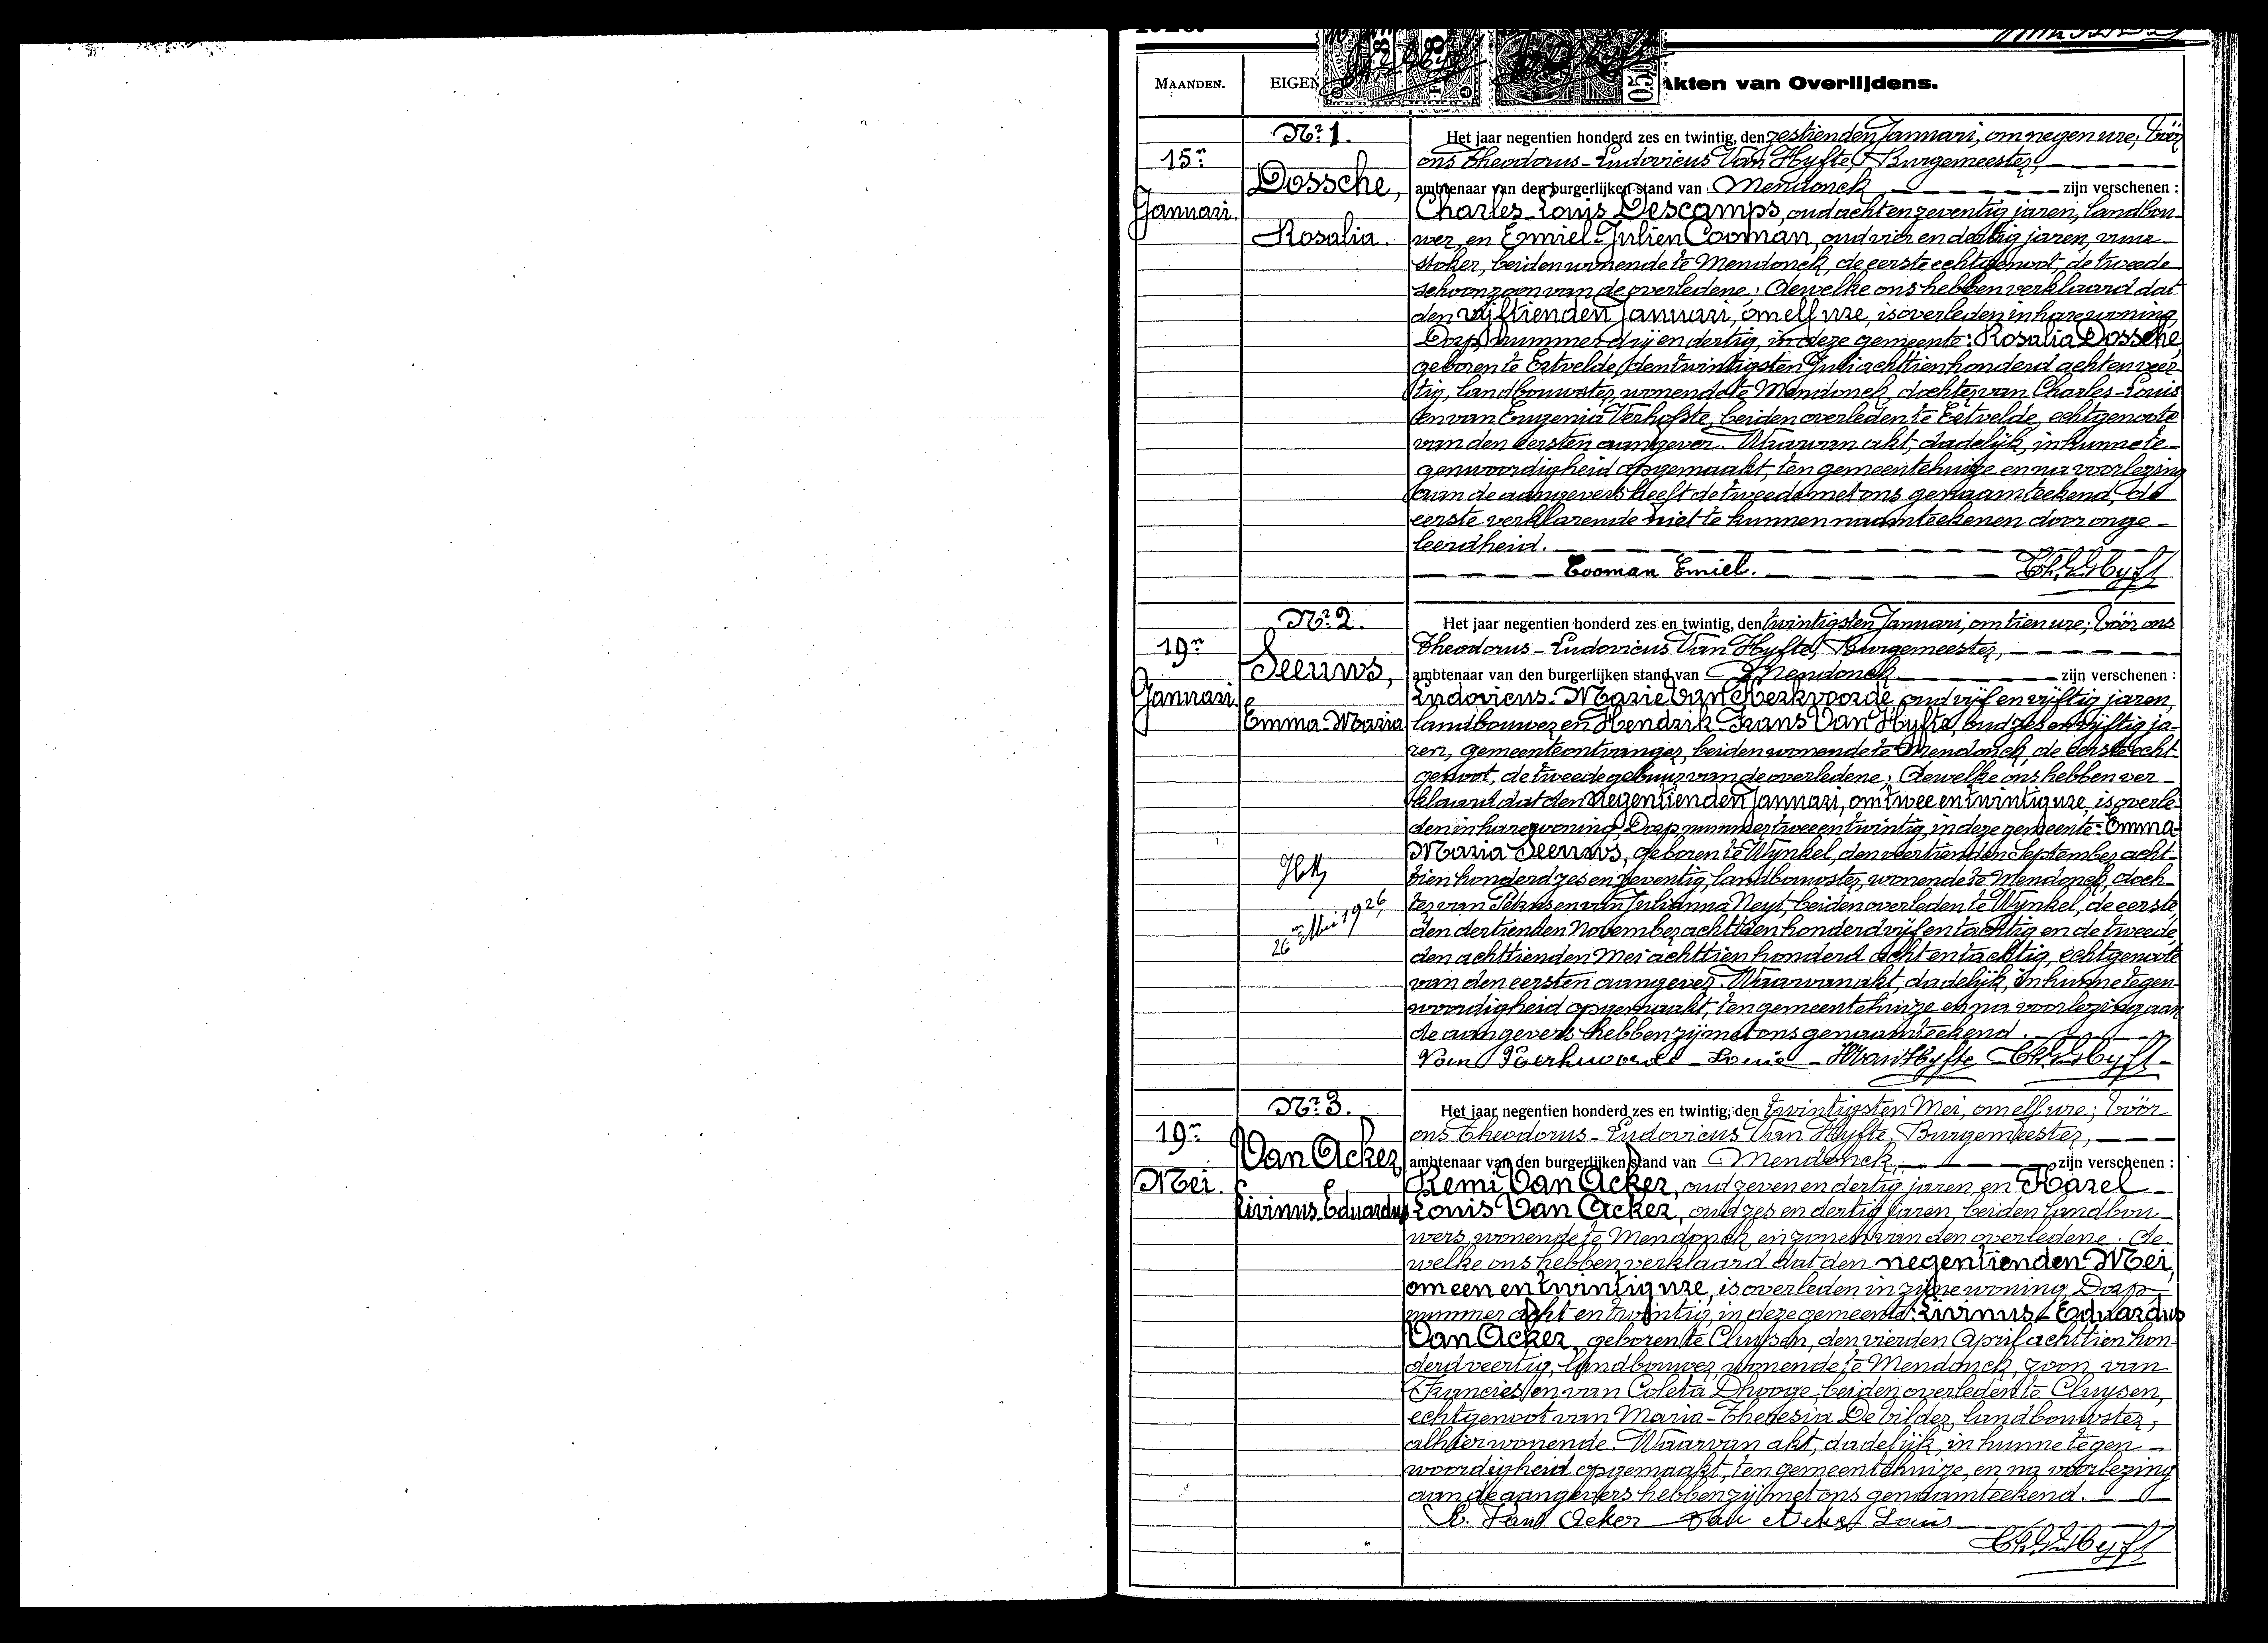 MAANDEN.
EIGEN
Akten van Overlijdens.
Nr. 1.
15n
Januari.
Dossche,
Rosalia.
Het jaar negentien honderd zes en twintig, den zestienden Januari, om negen ure, vóór
ons Theodorus-Ludovicus Van Hyfte, Burgemeester,
ambtenaar van den burgerlijken stand van Mendonck, zijn verschenen :
Charles-Louis Descamps, oud acht en zeventig jaren, landbou-
wer, en Emiel-Julien Cooman, oud vier en dertig jaren, vuur-
stoker, beiden wonende te Mendonck, de eerste echtgenoot, de tweede
schoonzoon van de overledene; dewelke ons hebben verklaard dat
den vijftienden Januari, om elf ure, is overleden in hare woning,
Dorp, nummer drij en dertig, in deze gemeente: Rosalia Dossche,
geboren te Ertvelde, den twintigsten Juli achttien honderd acht en veer-
tig, landbouwster, wonende te Mendonck, dochter van Charles-Louis
en van Eugenia Verhofste, beiden overleden te Ertvelde, echtgenoote
van den eersten aangever. Waarvan akt, dadelijk, in hunne te-
genwoordigheid opgemaakt, ten gemeentehuize en na voorlezing
aan de aangevers heeft de tweede met ons genaamteekend, de
eerste verklarende niet te kunnen naamteekenen door onge-
leerdheid.
Cooman Emiel. Th. L. V. Hyft
Nr. 2.
19n
Januari.
Seeuws,
Emma-Maria
26n Mei 1926
Het jaar negentien honderd zes en twintig, den twintigsten Januari, om tien ure; vóór ons
Theodorus-Ludovicus Van Hyfte, Burgemeester,
ambtenaar van den burgerlijken stand van Mendonck zijn verschenen :
Ludovicus-Marie Van Kerkvoorde, oud vijf en vijftig jaren,
landbouwer en Hendrik Frans Van Hyfte, oud zes en vijftig ja-
ren, gemeenteontvanger, beiden wonende te Mendonck, de eerste echt-
genoot, de tweede gebuur van de overledene; dewelke ons hebben ver-
klaard dat den negentienden Januari, om twee en twintig ure, is overle-
den in hare woning, Dorp nummer twee en twintig, in deze gemeente: Emma-
Maria Seeuws, geboren te Wynkel, den veertienden September acht-
tien honderd zes en zeventig, landbouwster, wonende te Mendonck, doch-
ter van Petrus en van Julianna Neyt, beiden overleden te Wynkel, de eerste
den dertienden November achttien honderd vijf en tachtig en de tweede
den achttienden Mei achttien honderd acht en tachtig, echtgenoote
van den eersten aangever. Waarvan akt, dadelijk, in hunne tegen-
woordigheid opgemaakt, ten gemeentehuize en na voorlezing aan
de aangevers hebben zij met ons genaamteekend.
Van Kerkvoorde Louis H Van Hyfte Th. L. V. Hyft
Nr. 3.
19n
Mei.
Van Acker
Livinus-Eduardus
Het jaar negentien honderd zes en twintig, den twintigsten Mei, om elf ure; vóór
ons Theodorus-Ludovicus Van Hyfte, Burgemeester,
ambtenaar van den burgerlijken stand van Mendonck, zijn verschenen :
Remi Van Acker, oud zeven en dertig jaren, en Karel-
Louis Van Acker, oud zes en dertig jaren, beiden landbou-
wers, wonende te Mendonck, en zonen van den overledene; de-
welke ons hebben verklaard dat den negentienden Mei,
om een en twintig ure, is overleden in zijne woning, Dorp
nummer acht en twintig, in deze gemeente: Livinus-Eduardus
Van Acker, geboren te Cluysen, den vierden April achttien hon-
derd veertig, landbouwer, wonende te Mendonck, zoon van
Francies en van Coleta Dhooge, beiden overleden te Cluysen,
echtgenoot van Maria-Theresia De Vilder, landbouwster,
alhier wonende. Waarvan akt, dadelijk, in hunne tegen-
woordigheid opgemaakt, ten gemeentehuize, en na voorlezing
aan de aangevers hebben zij met ons genaamteekend.
R. Van Acker Van Acker Louis
Th. L. V. Hyft